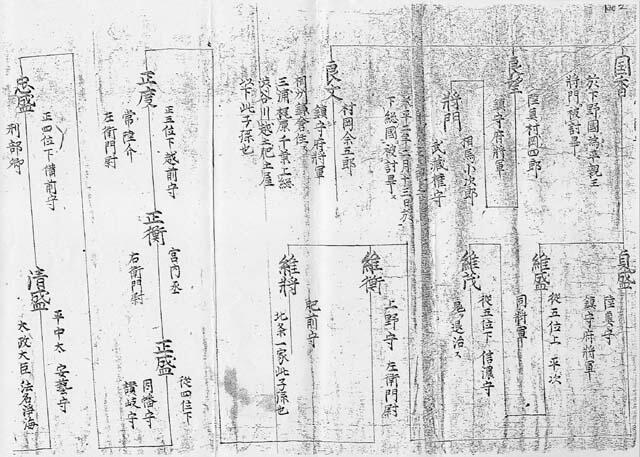 No 2
国香
於下野國為平親王
将門被討畢
貞盛
陸奥守
鎮守府将軍
維盛
従五位上 平次
同将軍
維茂
従五位下 信濃守
良望
陸奥村岡四郎
鎮守府将軍
将門
相馬小次郎
武蔵権守
下総國被討畢
維衡
上野守 左衛門尉
良文
村岡余五郎
鎮守府将軍
三浦梶原千葉上総
渋谷川越土肥土屋
以下此子孫也
維将
肥前守
北条一家此子孫也
正度
正五位下越前守
常陸介
左衛門尉
正衡
宮内丞
右衛門尉
正盛
従四位下
因幡守
讃岐守
忠盛
正四位下備前守
刑部卿
清盛
平中太 安藝守
太政大臣 法名浄海